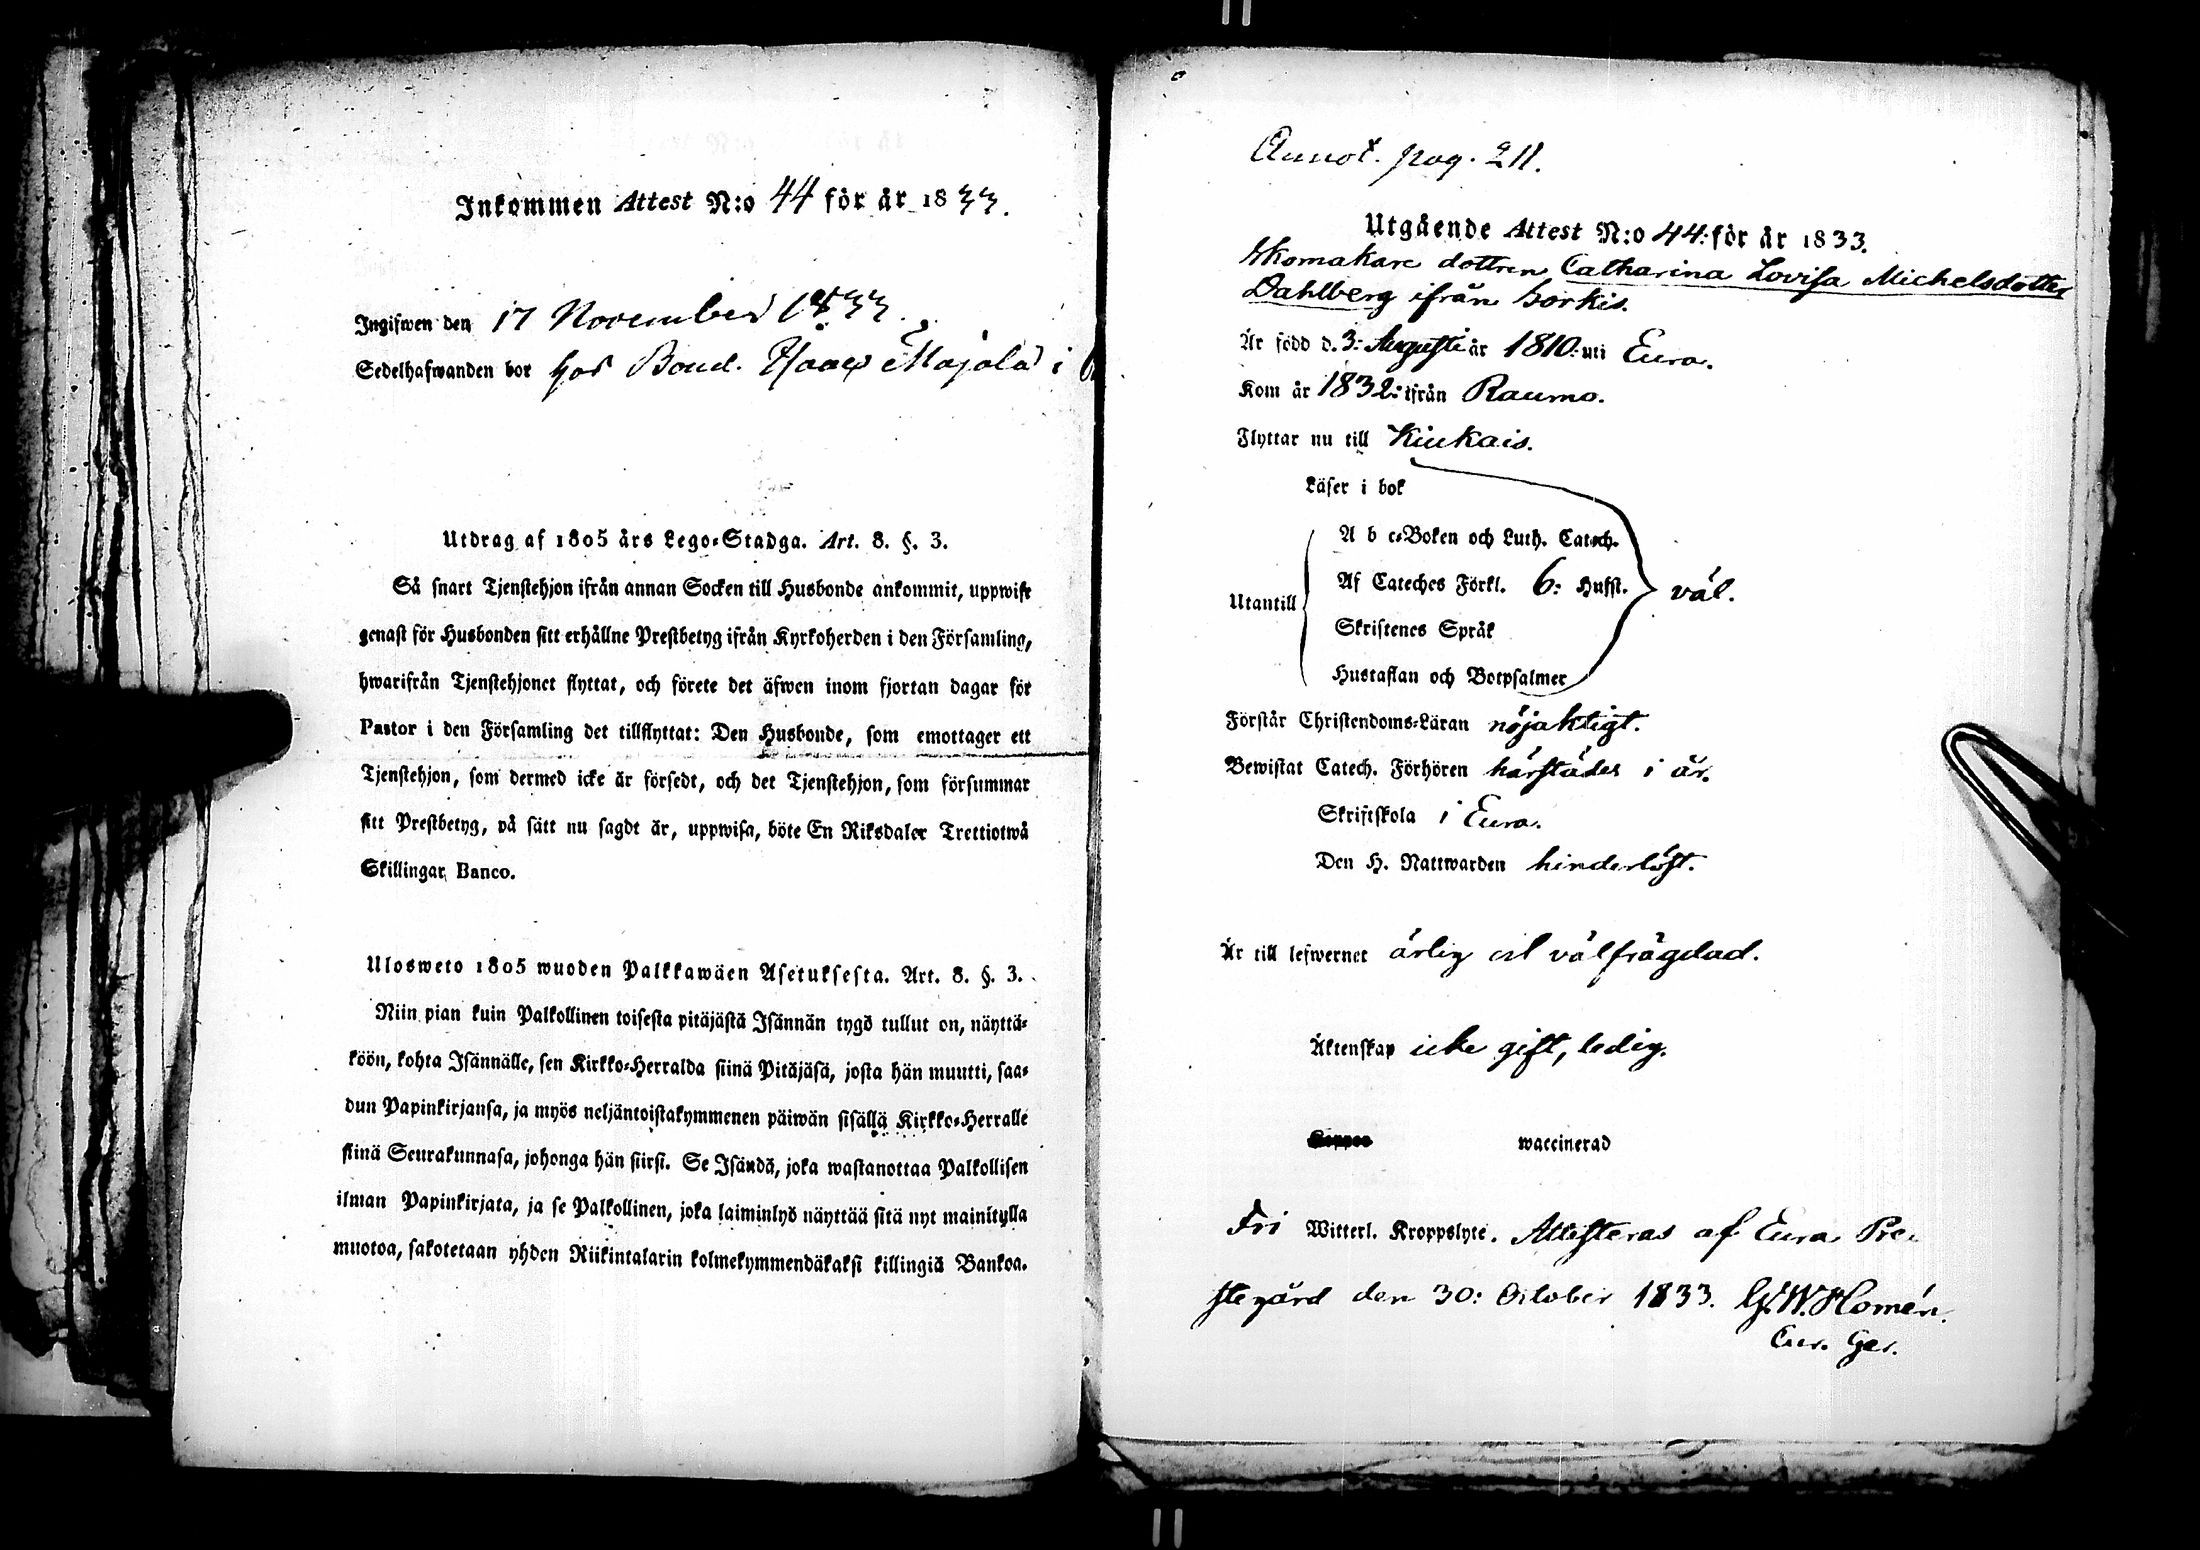 Inkommen Attest N:o 44 för år 1833.
Ingifwen den 17 November 1833.
Sedelhafwanden bor hos Bond. Isaac Majala i
Utdrag af 1805 års Lego-Stadga. Art. 8. §. 3.
Så snart Tjenstehjon ifrån annan Socken till Husbonde ankommit, uppwise
genast för Husbonden sitt erhållne Prestbetyg ifrån Kyrkoherden i den Församling,
hwarifrån Tjenstehjonet flyttat, och förete det äfwen inom fjortan dagar för
Pastor i den Församling det tillflyttat: Den Husbonde, som emottager ett
Tjenstehjon, som dermed icke är försedt, och det Tjenstehjon, som försummar
sitt Prestbetyg, på sätt nu sagdt är, uppwisa, böte En Riksdaler Trettiotwå
Skillingar Banco.
Ulosweto 1805 wuoden Palkkawäen Asetuksesta. Art. 8. §. 3.
Niin pian kuin Palkollinen toisesta pitäjästä Isännän tygö tullut on, näyttä-
köön, kohta Isännälle, sen Kirkko-Herralda siinä Pitäjäsä, josta hän muutti, saa-
dun Papinkirjansa, ja myös neljäntoistakymmenen päiwän sisällä Kirkko-Herralle
siinä Seurakunnasa, johonga hän siirsi. Se Isändä, joka wastanottaa Palkollisen
ilman Papinkirjata, ja se Palkollinen, joka laiminlyö näyttää sitä nyt mainitulla
muotoa, sakotetaan yhden Riikintalarin kolmekymmendäkaksi killingiä Bankoa.
Annot. pag. 211.
Utgående Attest N:o 44: för år 1833.
Skomakare dottren Catharina Lovisa Michelsdotter
Dahlberg ifrån Sorkis.
Är född d. 3: Augusti år 1810: uti Eura.
Kom år 1832: ifrån Raumo.
Flyttar nu till Kiukais.
Läser i bok
A b c-Boken och Luth. Catech.
Af Cateches Förkl. 6: Hufst. väl.
Utantill
Skriftenes Språk
Hustaflan och Botpsalmer
Förstår Christendoms-Läran nöjaktigt.
Bewistat Catech. Förhören härstädes i år.
Skriftskola i Eura.
Den H. Nattwarden hinderlöst.
Är till lefwernet ärlig och välfrägdad.
Äktenskap icke gift, ledig.
waccinerad
Fri Witterl. Kroppslyte. Attesteras af Eura Pre-
stegård den 30: October 1833. G. W. Homén.
Cur. Ger.